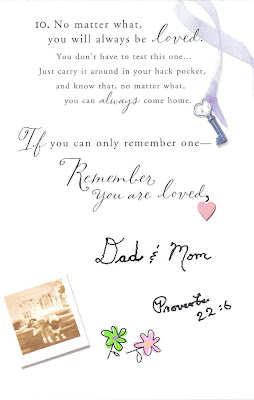 10. No matter what,
you will always be loved.
You don't have to test this one...
Just carry it around in your back pocket,
and know that, no matter what,
you can always come home.
If you can only remember one—
Remember
you are loved,
Dad & Mom
Proverbs
22:6